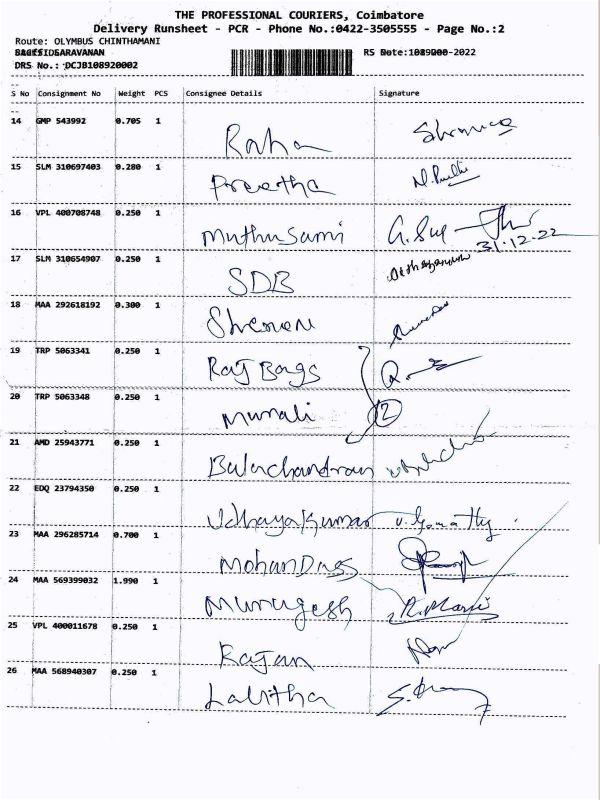 THE PROFESSIONAL COURIERS, Coimbatore
Delivery Runsheet - PCR - Phone No.:0422-3505555 - Page No.:2
Route: OLYMBUS CHINTHAMANI
SARAVANAN RS Date: -2022
DRS No.: DCJB108920002
S No Consignment No Weight PCS Consignee Details Signature
14 GMP 543992 0.705 1 Raha
15 SLM 310697403 0.280 1 Preetha
16 VPL 400708748 0.250 1 Muthusami
31.12.22
17 SLM 310654907 0.250 1 SDB
18 MAA 292618192 0.300 1
19 TRP 5063341 0.250 1 Raj Bags
20 TRP 5063348 0.250 1 Murali 2
21 AMD 25943771 0.250 1 Balachandran
22 EDQ 23794350 0.250 1 Udhayakumar V. Gomathy
23 MAA 296285714 0.700 1 MohanDass
24 MAA 569399032 1.990 1 Murugesh
25 VPL 400011678 0.250 1 Rajan
26 MAA 568940307 0.250 1 Lalitha